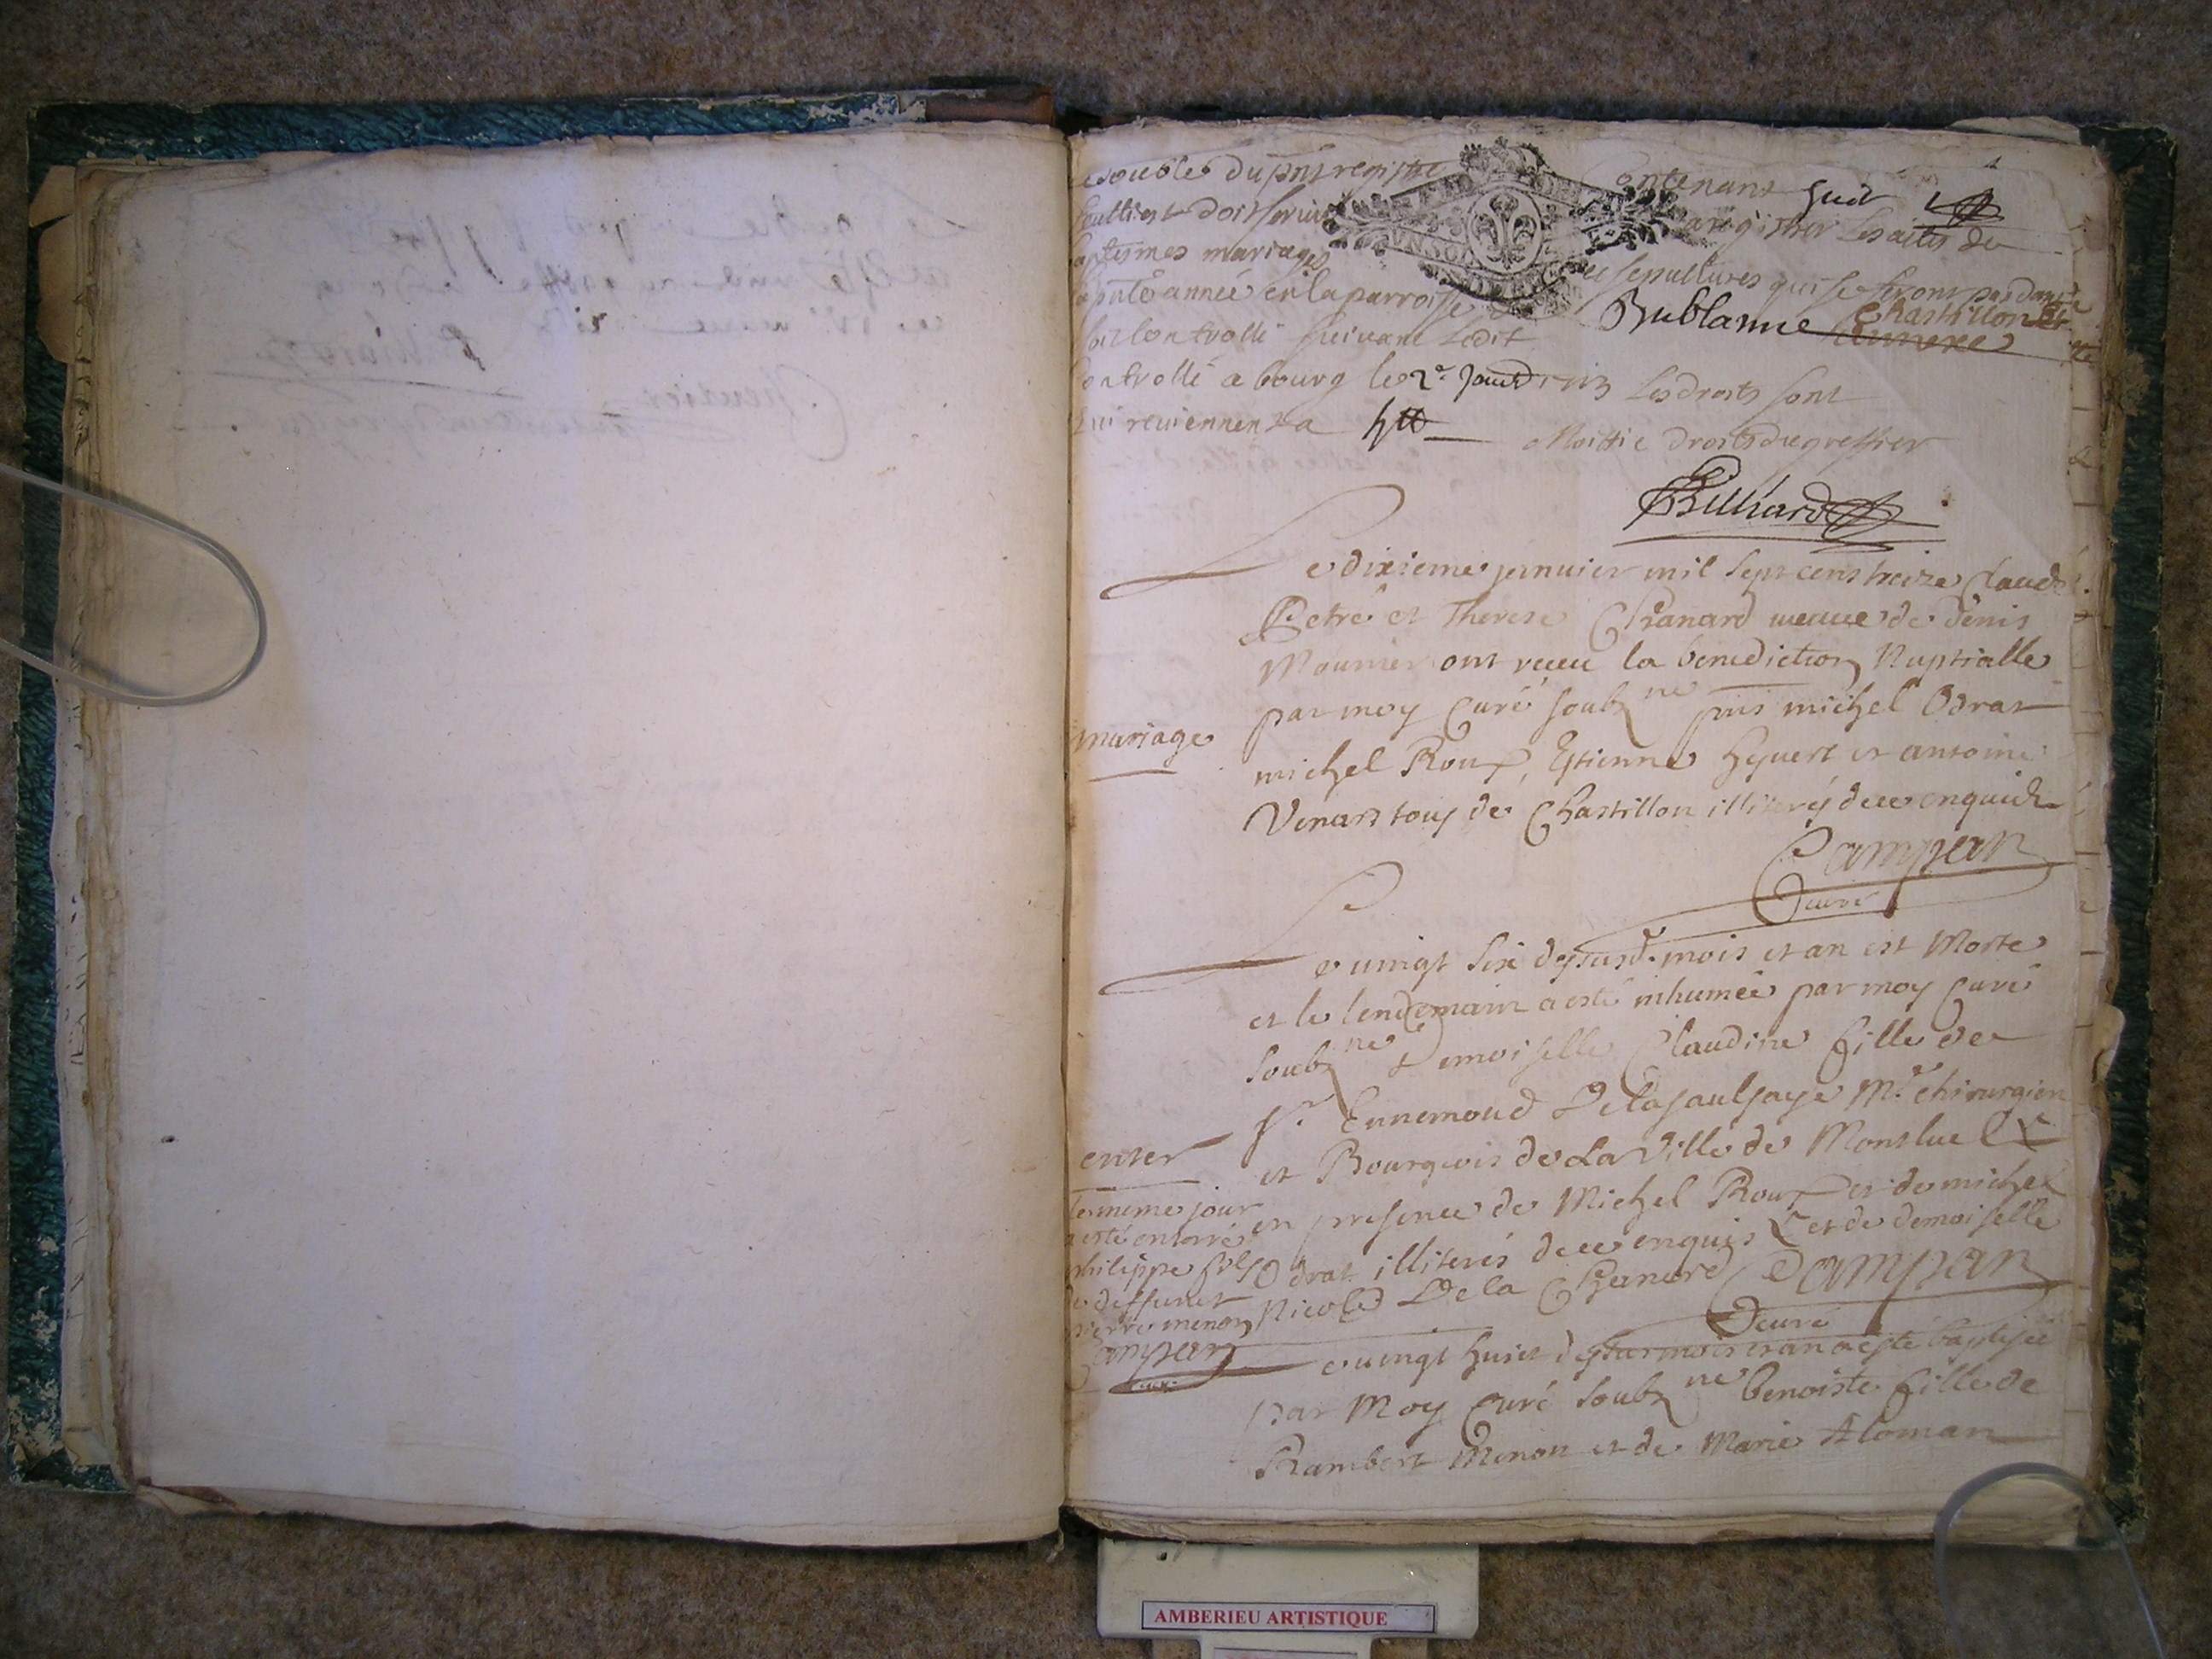 double du pnt registre contenant huit
doit servir enregistrer les actes de
baptesmes mariages et sepultures qui se feront pendant
la pnte année en la parroisse Bublanne Chastillon
soit controllé suivant Ledit
controllé a bourg le 2e Janv 1713 Les droits sont
qui reviennent a Moittie droits du greffier
Billiard
Le dixieme jeanvier mil sept cens treize Claude
Petre et Therese Chanard veuve de denis
Mounier ont receu la benediction Nuptialle
par moy Curé soubzne pnts michel Odrat
mariage
michel Roux, Estienne heyvert et antoine
Venars tous de Chastillon illiterés de ce enquis
Campan
curé
Le vingt six desusd. mois et an est Morte
et le lendemain a esté inhumée par moy Curé
soubzne demoiselle Claudine fille de
sr. Ennemond Delasaulsaye Me. chirurgien
et Bourgeois de La Ville de Monluel
enter
en presence de Michel Roux et de michel
Odrat illiterés de ce enquis et de demoiselle
Nicole De la Chanard Campan
curé
le meme jour
a esté enterré
philippe fils
de deffunct
pierre menon
Campan
curé
Le vingt huit desus mois et an a este baptisée
par Moy Curé soubzne benoiste fille de
Rambert Menon et de Marie Aloman
AMBERIEU ARTISTIQUE